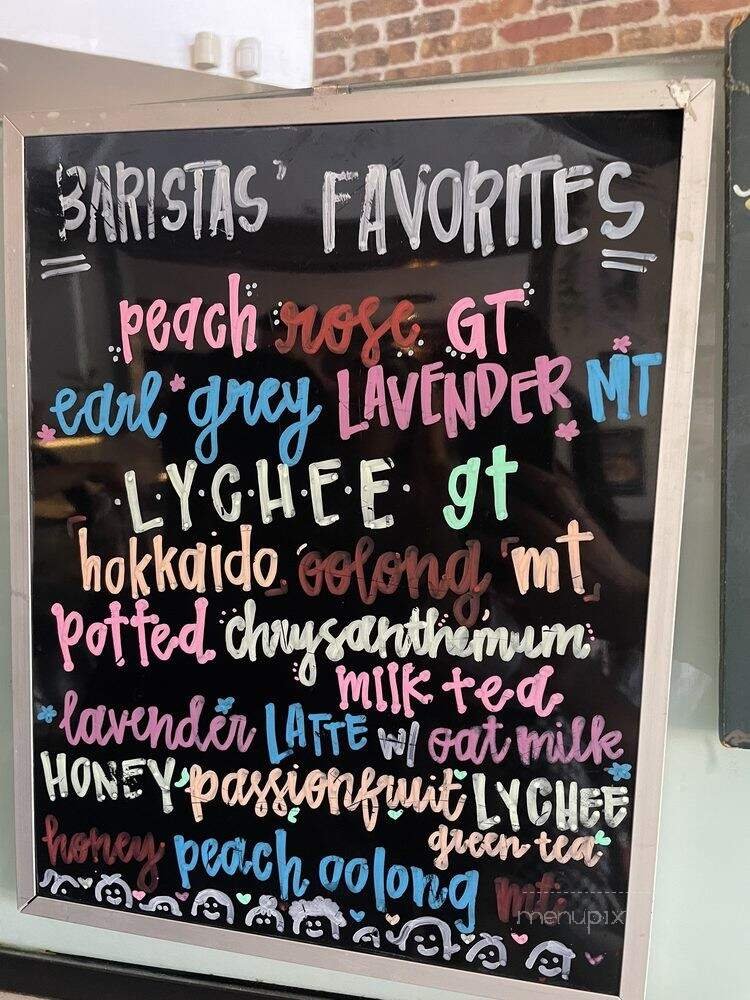 BARISTAS' FAVORITES
peach rose GT
earl grey LAVENDER MT
L·Y·C·H·E·E gt
hokkaido oolong mt
potted chrysanthemum
milk tea
lavender LATTE w/ oat milk
HONEY passionfruit LYCHEE
green tea
honey peach oolong mt
menupix